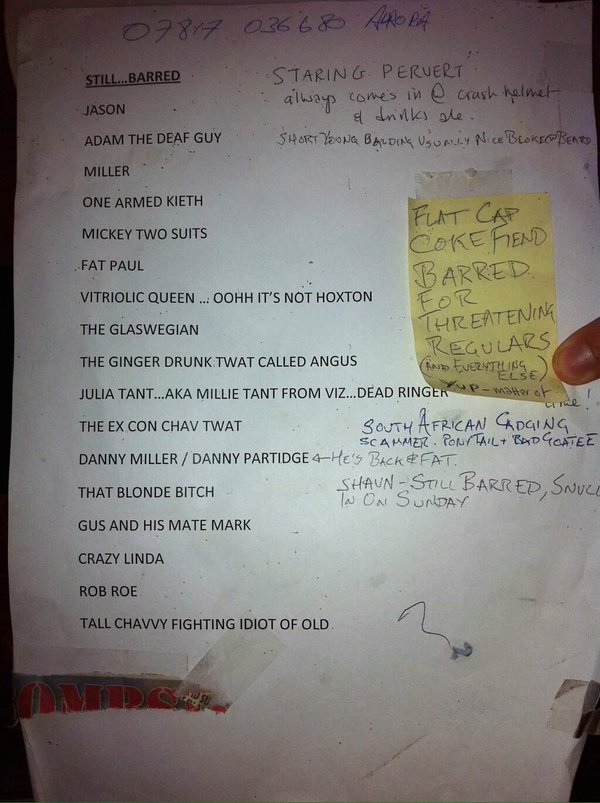 07817 036680 AURORA
STILL...BARRED
STARING PERVERT
always comes in @ crash helmet
& drinks ale.
JASON
ADAM THE DEAF GUY
SHORT YOUNG BALDING USUALLY NICE BLOKE @ BEARD
MILLER
ONE ARMED KIETH
MICKEY TWO SUITS
FAT PAUL
VITRIOLIC QUEEN ... OOHH IT'S NOT HOXTON
THE GLASWEGIAN
THE GINGER DRUNK TWAT CALLED ANGUS
JULIA TANT...AKA MILLIE TANT FROM VIZ...DEAD RINGER
FLAT CAP
COKE FIEND
BARRED
FOR
THREATENING
REGULARS
(AND EVERYTHING
ELSE)
YUP - matter of
time!
THE EX CON CHAV TWAT
SOUTH AFRICAN CADGING
SCAMMER. PONYTAIL + BAD GOATEE
DANNY MILLER / DANNY PARTIDGE ← HE'S BACK & FAT.
THAT BLONDE BITCH
SHAUN - STILL BARRED, SNUCK
IN ON SUNDAY
GUS AND HIS MATE MARK
CRAZY LINDA
ROB ROE
TALL CHAVVY FIGHTING IDIOT OF OLD